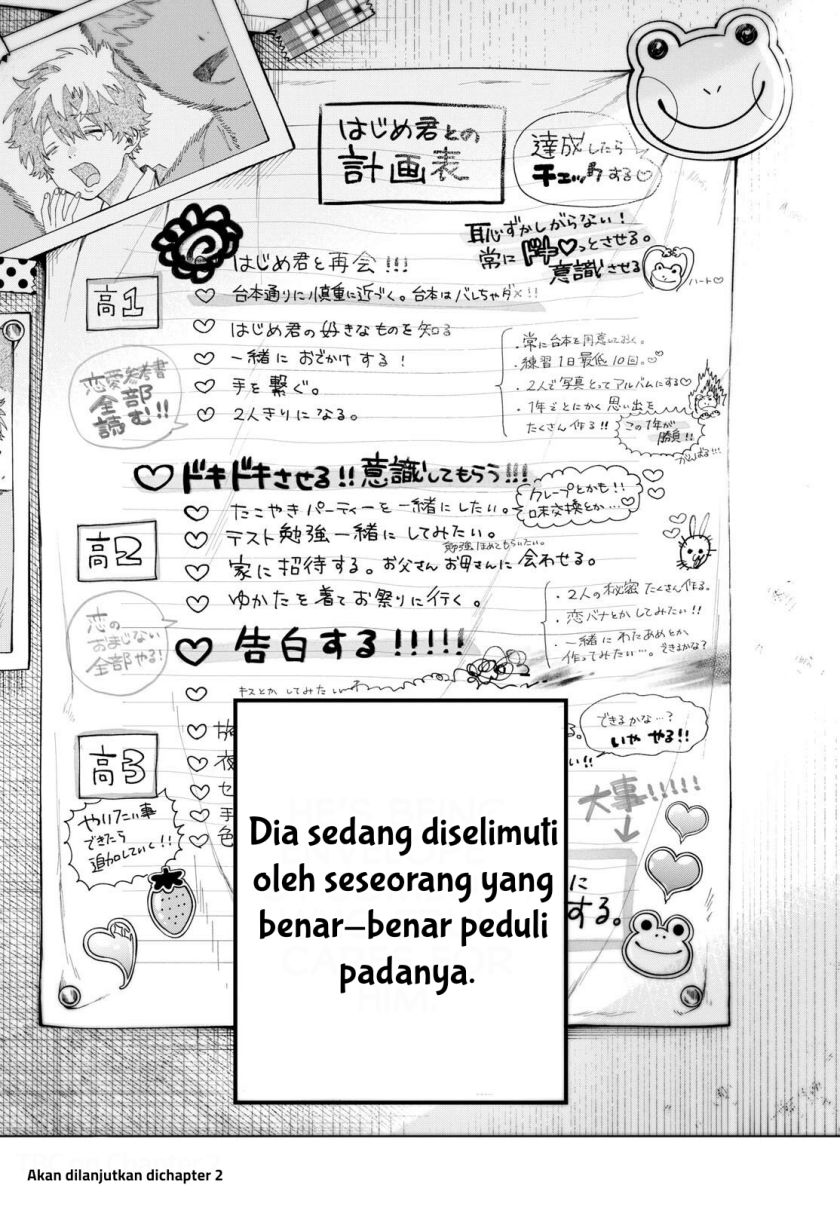 はじめ君との
計画表
達成したら
チェックする♡
恥ずかしがらない！
常にドキ♡っとさせる。
意識させる
ハート♡
はじめ君と再会!!!
高1
♡ 台本通りに慎重に近づく。台本はバレちゃダメ!!
♡ はじめ君の好きなものを知る
♡ 一緒におでかけする!
♡ 手を繋ぐ。
♡ 2人きりになる。
恋愛参考書
全部
読む!!
・常に台本を用意しておく。
・練習1日最低10回。
・2人で写真とってアルバムにする♡
・1年でとにかく思い出を
たくさん作る!!
この1年が
勝負!!
がんばる!!!
♡ドキドキさせる!!意識してもらう!!!
♡ たこやきパーティーを一緒にしたい。
クレープとかも!!
味交換とか…
高2
♡ テスト勉強一緒にしてみたい。
勉強ほめてもらいたい。
♡ 家に招待する。お父さんお母さんに会わせる。
♡ ゆかたを着てお祭りに行く。
・2人の秘密たくさん作る。
・恋バナとかしてみたい!!
・一緒にわたあめとか
作ってみたい…。できるかな?
恋の
おまじない
全部やる!
♡ 告白する!!!!!
♡ キスとかしてみたい
できるかな…?
いややる!!
高3
♡
♡ 夜
♡ セ
♡ 手
♡ 色
る。
い!!
大事!!!!!
やりたい事
できたら
追加していく!!
に
する。
Dia sedang diselimuti
oleh seseorang yang
benar-benar peduli
padanya.
Akan dilanjutkan dichapter 2